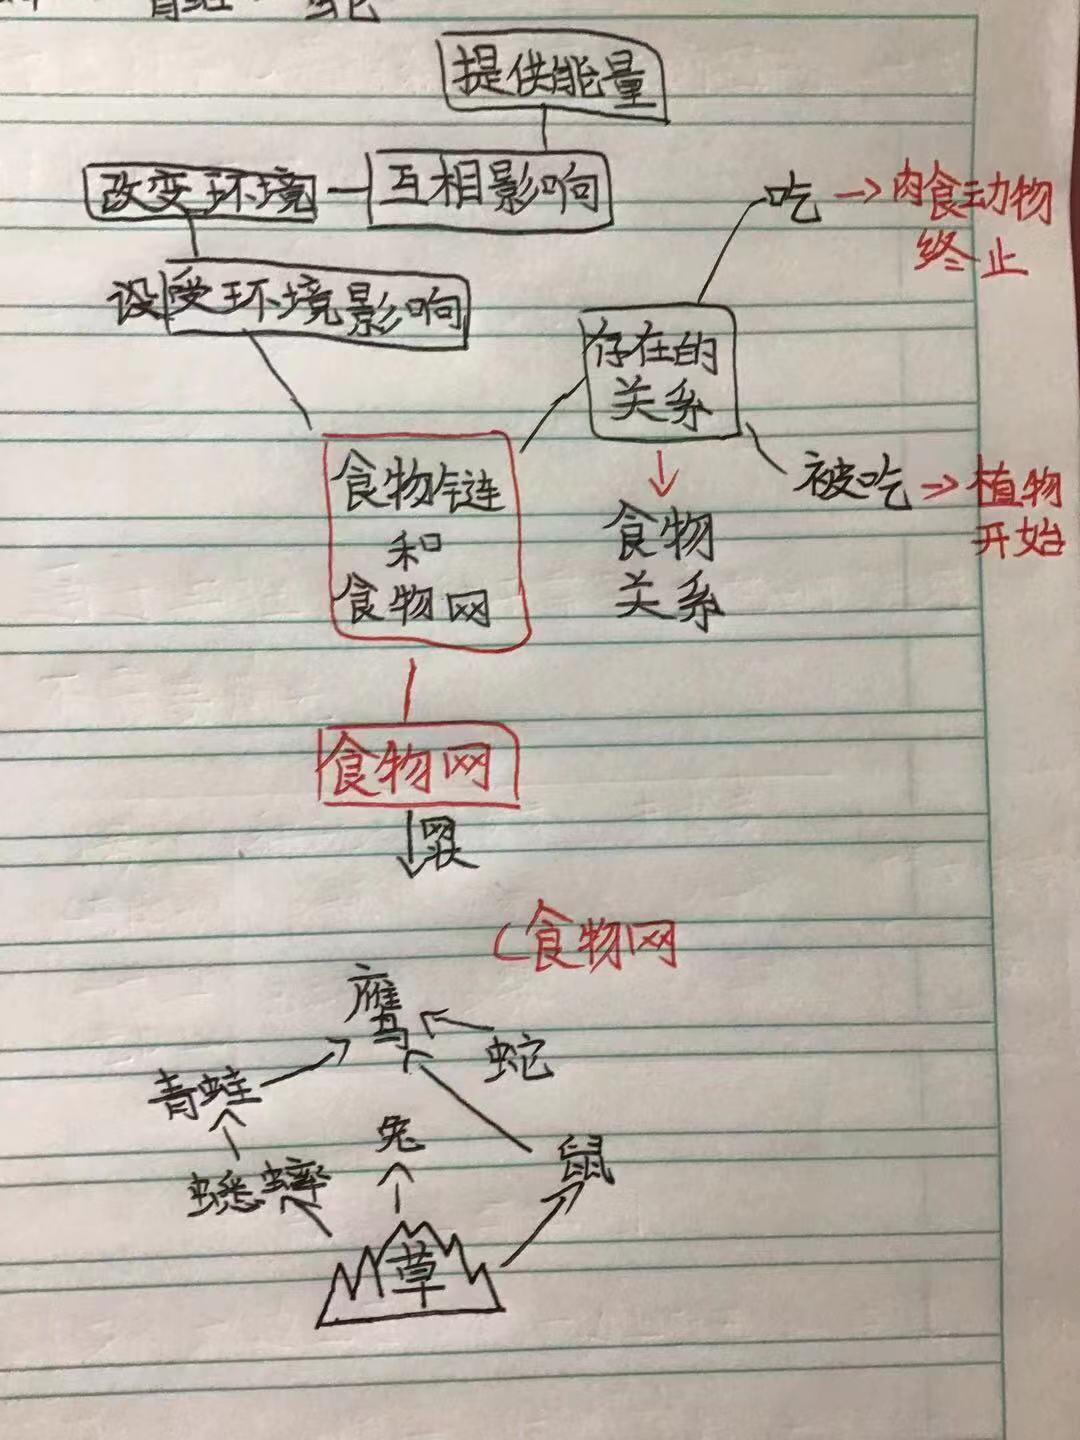 青蛙
蛇
提供能量
改变环境
互相影响
吃→肉食动物
终止
设受环境影响
存在的
关系
食物链
和
食物网
被吃→植物
开始
食物
关系
食物网
(食物网
鹰
蛇
青蛙
兔
鼠
蟋蟀
草